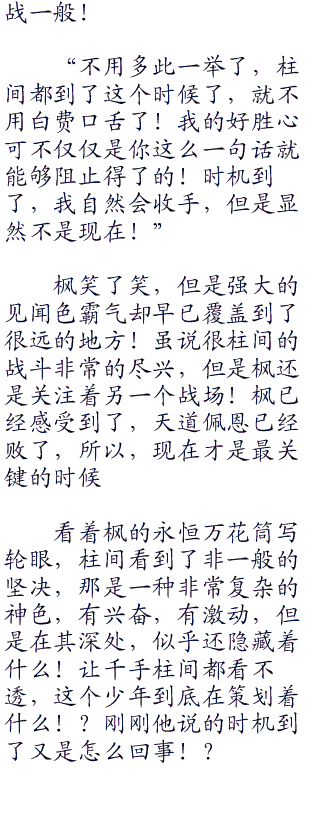 战一般！
“不用多此一举了，柱
间都到了这个时候了，就不
用白费口舌了！我的好胜心
可不仅仅是你这么一句话就
能够阻止得了的！时机到
了，我自然会收手，但是显
然不是现在！”
枫笑了笑，但是强大的
见闻色霸气却早已覆盖到了
很远的地方！虽说很柱间的
战斗非常的尽兴，但是枫还
是关注着另一个战场！枫已
经感受到了，天道佩恩已经
败了，所以，现在才是最关
键的时候
看着枫的永恒万花筒写
轮眼，柱间看到了非一般的
坚决，那是一种非常复杂的
神色，有兴奋，有激动，但
是在其深处，似乎还隐藏着
什么！让千手柱间都看不
透，这个少年到底在策划着
什么！？刚刚他说的时机到
了又是怎么回事！？